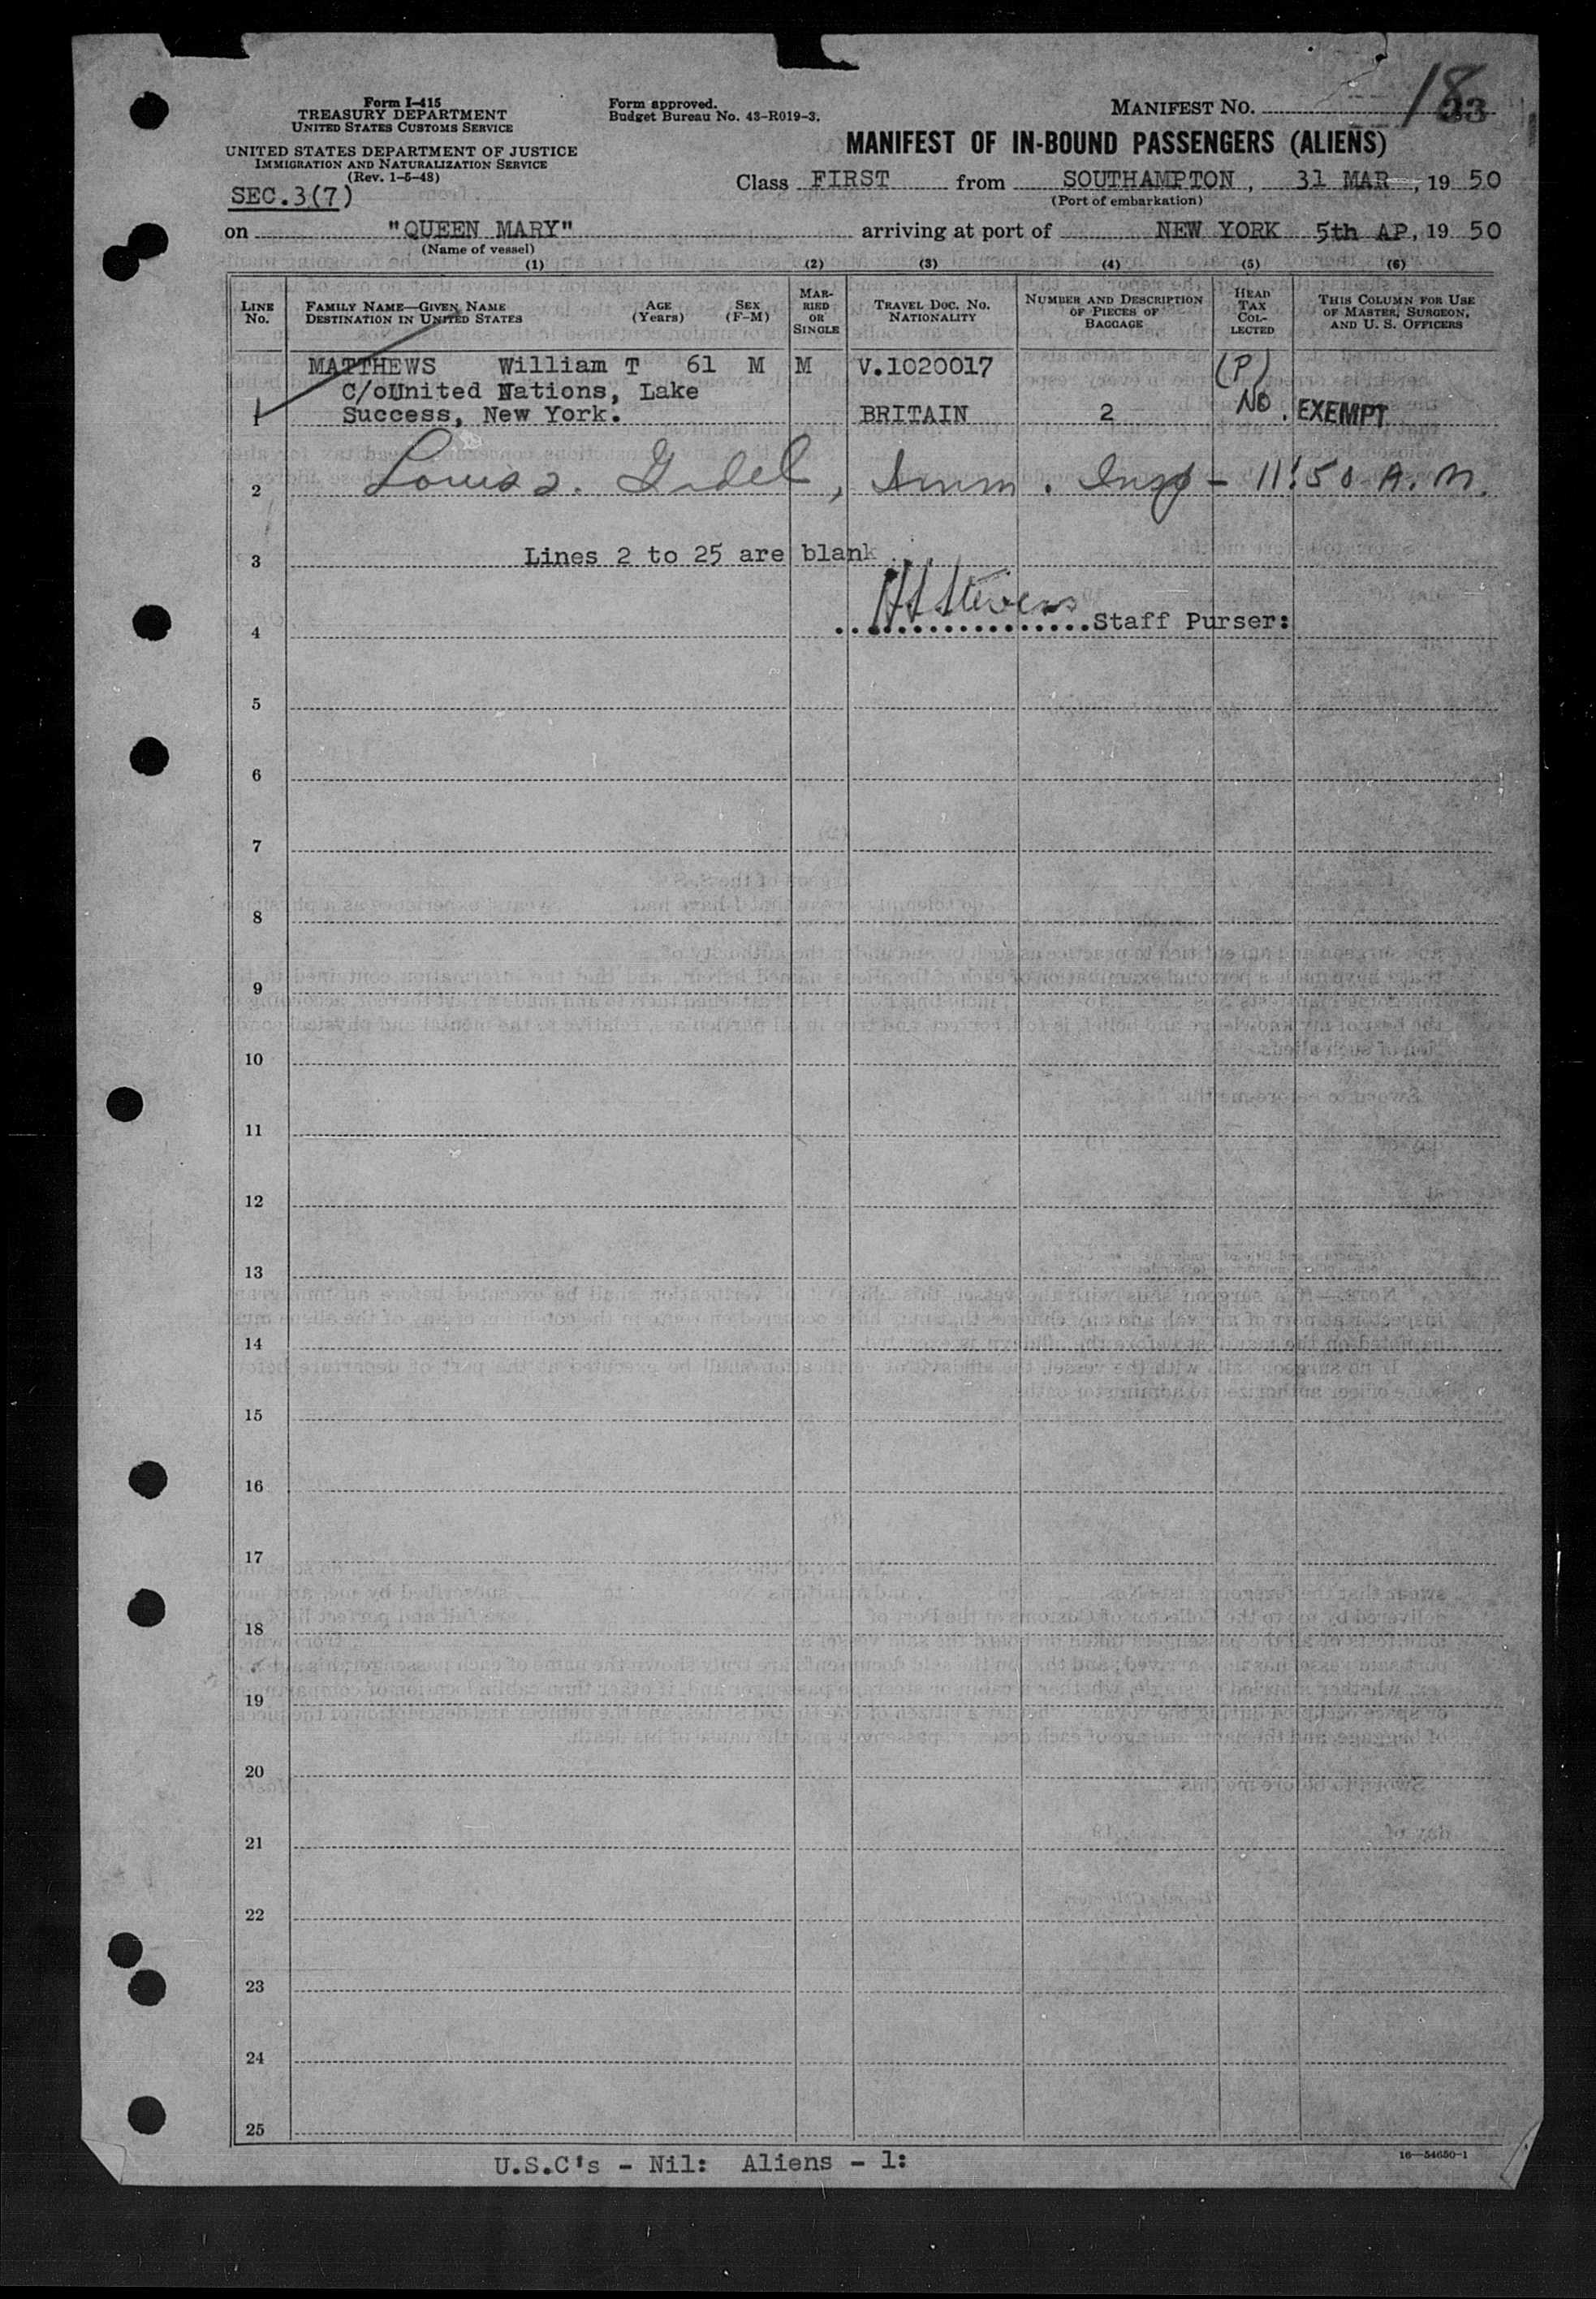 Form I-415
TREASURY DEPARTMENT
UNITED STATES CUSTOMS SERVICE
UNITED STATES DEPARTMENT OF JUSTICE
IMMIGRATION AND NATURALIZATION SERVICE
(Rev. 1-5-48)
SEC.3(7)
Form approved.
Budget Bureau No. 43-R019-3.
MANIFEST NO. 18 33
MANIFEST OF IN-BOUND PASSENGERS (ALIENS)
Class FIRST from SOUTHAMPTON, 31 MAR, 19 50
(Port of embarkation)
on "QUEEN MARY" arriving at port of NEW YORK 5th AP, 19 50
(Name of vessel)
(1) (2) (3) (4) (5) (6)
LINE No.
FAMILY NAME—GIVEN NAME
DESTINATION IN UNITED STATES
AGE (Years)
SEX (F-M)
MARRIED OR SINGLE
TRAVEL DOC. NO.
NATIONALITY
NUMBER AND DESCRIPTION OF PIECES OF BAGGAGE
HEAD TAX COLLECTED
THIS COLUMN FOR USE OF MASTER, SURGEON, AND U. S. OFFICERS
MATTHEWS William T 61 M M V.1020017 (P)
C/oUnited Nations, Lake
1 Success, New York. BRITAIN 2 No. EXEMPT
2 Imm. Insp - 11:50 A.M.
3 Lines 2 to 25 are blank
H Stevens
4 ..................Staff Purser:
5
6
7
8
9
10
11
12
13
14
15
16
17
18
19
20
21
22
23
24
25
U.S.C's - Nil: Aliens - 1:
16—54650-1